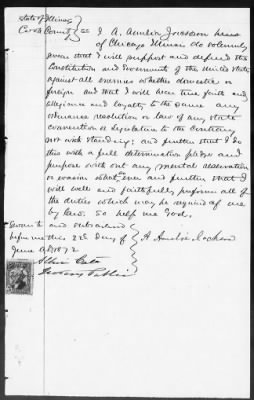 State of Illinois
Cook County } ss
I A. Amelie of Chicago Illinois do solemnly
swear that I will support and defend the
Constitution and Government of the United States
against all enemies whether domestic or
foreign and that I will bear true faith and
allegiance and loyalty to the same any
ordinance resolution or law of any state
convention or legislature to the contrary
notwithstanding; and further that I do
this with a full determination pledge and
purpose without any mental reservation
or evasion whatsoever and further that I
will well and faithfully perform all of
the duties which may be required of me
by law. So help me God.
Sworn to and subscribed
before me this 22d day of
June AD 1872
A Amelie
Notary Public